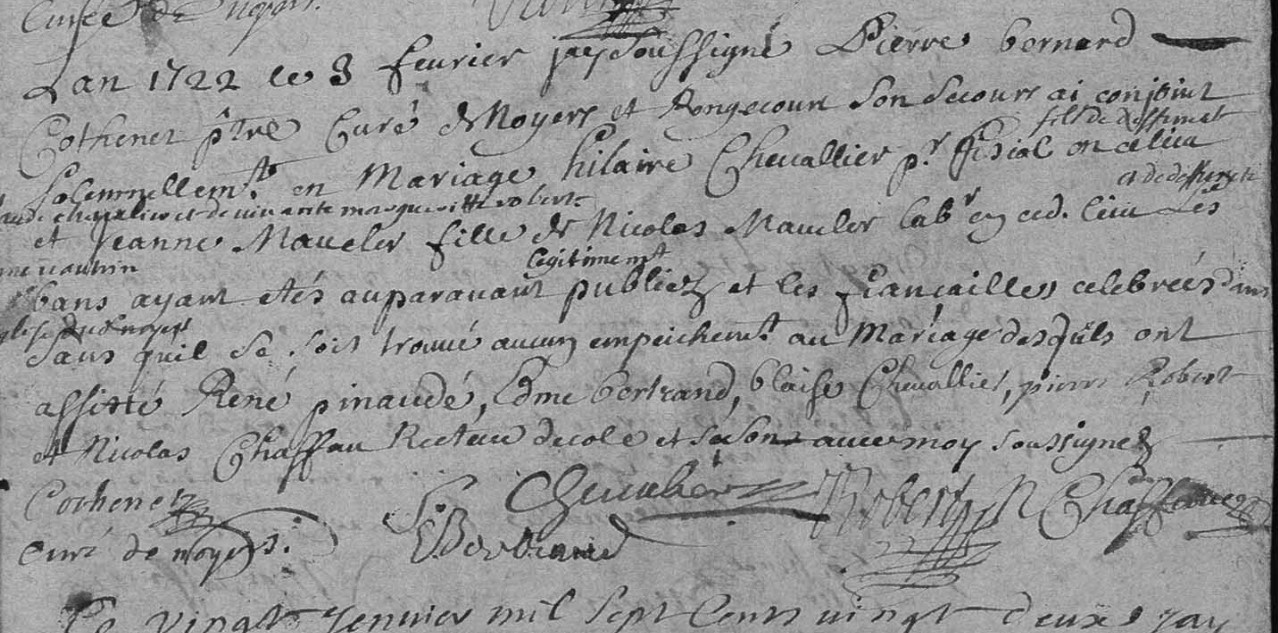 Curé de Noyers.
Lan 1722 le 3 feurier jay soussigné Pierre bernard
Cothenet ptre Curé de Noyers et Rongecourt son secours ai conjoint
fils de deffunct
Solemnellemt. en Mariage hilaire Cheuallier pr. fiscal en ce lieu
et de deffuncte
cheualier et de viuante margueritte robert
et Jeanne Maucler fille de Nicolas Maucler labr en ced. lieu Les
legitimemt
bans ayant etés auparauant publiez et les fiancailles celebreés dans
sans quil se soit trouué aucun empeichemt. au Mariage desqls ont
assisté René pinaudé, Edme bertrand, blaise Cheuallier, pierre Robert
et Nicolas Chaffau Recteur decole et se sont auec moy soussignez
Cothenet
Cheualier
Robert
N Chaffau
curé de noyers.
E Bertrand
Le vingt Jenuier mil sept Cents vingt deux Jay